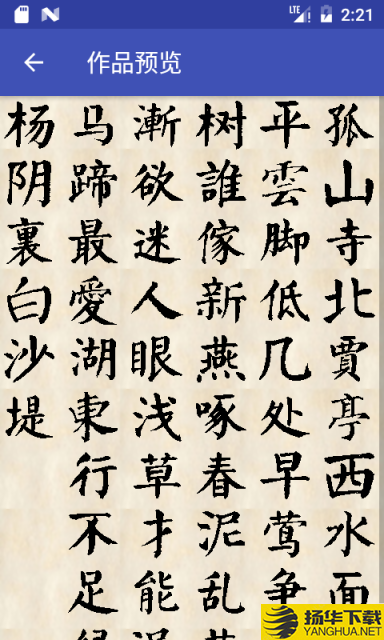 LTE 2:21
作品预览
孤山寺北賈亭西水面
平雲脚低几处早莺争
树誰傢新燕啄春泥乱
漸欲迷人眼浅草才能
马蹄最愛湖東行不足
杨阴裏白沙堤
扬华下载
YANGHUA.NET